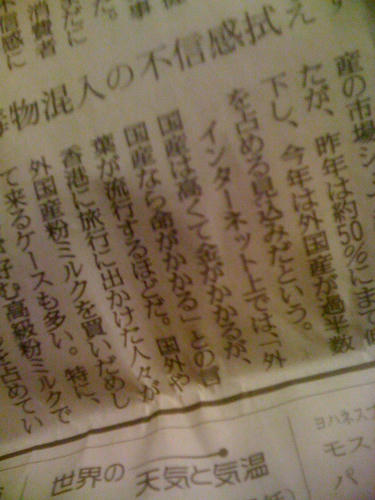 物混入の不信感拭え
不信感に
消費者
だに
事
産の市場シ
たが、昨年は約50%にまで
下し、今年は外国産が過半数
を占める見込みだという。
インターネット上では、「外
国産は高くて金がかかるが、
国産なら命がかかる」との言
葉が流行するほどだ。国外や
香港に旅行に出かけた人々が
外国産粉ミルクを買いだめし
て来るケースも多い。特に、
む高級粉ミルクで
を占めてい
世界の天気と気温
ヨハネス
モス
パ